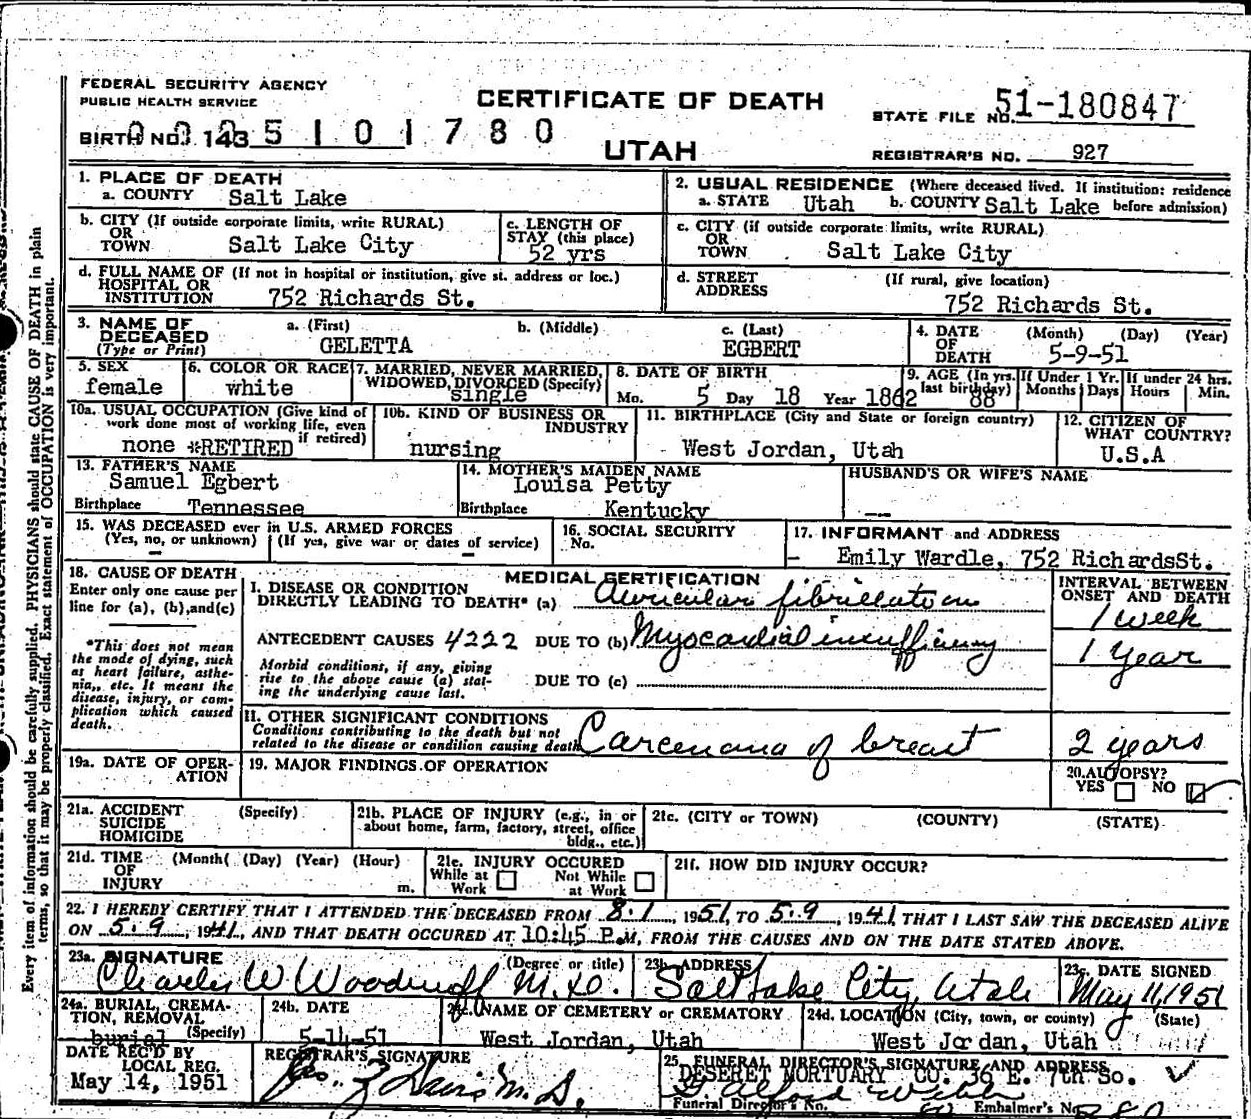 FEDERAL SECURITY AGENCY
PUBLIC HEALTH SERVICE
CERTIFICATE OF DEATH
STATE FILE NO. 51-180847
BIRTH NO. 143 5 1 0 1 7 8 0
UTAH
REGISTRAR'S NO. 927
1. PLACE OF DEATH
a. COUNTY Salt Lake
2. USUAL RESIDENCE (Where deceased lived. If institution: residence before admission)
a. STATE Utah b. COUNTY Salt Lake
b. CITY (If outside corporate limits, write RURAL)
OR
TOWN Salt Lake City
c. LENGTH OF
STAY (this place)
52 yrs
c. CITY (if outside corporate limits, write RURAL)
OR
TOWN Salt Lake City
d. FULL NAME OF (If not in hospital or institution, give st. address or loc.)
HOSPITAL OR
INSTITUTION 752 Richards St.
d. STREET (If rural, give location)
ADDRESS
752 Richards St.
3. NAME OF
DECEASED
(Type or Print)
a. (First) b. (Middle) c. (Last)
GELETTA EGBERT
4. DATE (Month) (Day) (Year)
OF
DEATH 5-9-51
5. SEX
female
6. COLOR OR RACE
white
7. MARRIED, NEVER MARRIED,
WIDOWED, DIVORCED (Specify)
single
8. DATE OF BIRTH
Mo. 5 Day 18 Year 1862
9. AGE (In yrs.
last birthday)
88
If Under 1 Yr.
Months Days
If under 24 hrs.
Hours Min.
10a. USUAL OCCUPATION (Give kind of
work done most of working life, even
if retired)
none *RETIRED
10b. KIND OF BUSINESS OR
INDUSTRY
nursing
11. BIRTHPLACE (City and State or foreign country)
West Jordan, Utah
12. CITIZEN OF
WHAT COUNTRY?
U.S.A
13. FATHER'S NAME
Samuel Egbert
Birthplace Tennessee
14. MOTHER'S MAIDEN NAME
Louisa Petty
Birthplace Kentucky
HUSBAND'S OR WIFE'S NAME
---
15. WAS DECEASED ever in U.S. ARMED FORCES
(Yes, no, or unknown) (If yes, give war or dates of service)
- -
16. SOCIAL SECURITY
No.
17. INFORMANT and ADDRESS
- Emily Wardle, 752 RichardsSt.
18. CAUSE OF DEATH
Enter only one cause per
line for (a), (b),and(c)
*This does not mean
the mode of dying, such
as heart failure, asthe-
nia,, etc. It means the
disease, injury, or com-
plication which caused
death.
MEDICAL CERTIFICATION
I. DISEASE OR CONDITION
DIRECTLY LEADING TO DEATH* (a) Auricular fibrillation
INTERVAL BETWEEN
ONSET AND DEATH
1 week
ANTECEDENT CAUSES 4222 DUE TO (b) Myocardial insufficiency 1 Year
Morbid conditions, if any, giving
rise to the above cause (a) stat-
ing the underlying cause last.
DUE TO (c)
II. OTHER SIGNIFICANT CONDITIONS
Conditions contributing to the death but not
related to the disease or condition causing death
Carcenoma of breast 2 years
19a. DATE OF OPER-
ATION
19. MAJOR FINDINGS OF OPERATION
20. AUTOPSY?
YES NO
21a. ACCIDENT (Specify)
SUICIDE
HOMICIDE
21b. PLACE OF INJURY (e.g., in or
about home, farm, factory, street, office
bldg., etc.)
21c. (CITY or TOWN) (COUNTY) (STATE)
21d. TIME (Month( (Day) (Year) (Hour)
OF
INJURY m.
21e. INJURY OCCURED
While at Work
Not While at Work
21f. HOW DID INJURY OCCUR?
22. I HEREBY CERTIFY THAT I ATTENDED THE DECEASED FROM 8-1, 1951, TO 5-9, 1941, THAT I LAST SAW THE DECEASED ALIVE
ON 5-9, 1941, AND THAT DEATH OCCURED AT 10:45 P.M, FROM THE CAUSES AND ON THE DATE STATED ABOVE.
23a. SIGNATURE (Degree or title)
Charles W Woodruff M.D.
23b. ADDRESS
Salt Lake City, Utah
23c. DATE SIGNED
May 11, 1951
24a. BURIAL, CREMA-
TION, REMOVAL
(Specify)
burial
24b. DATE
5-14-51
24c. NAME OF CEMETERY or CREMATORY
West Jordan, Utah
24d. LOCATION (City, town, or county) (State)
West Jordan, Utah
DATE REC'D BY
LOCAL REG.
May 14, 1951
REGISTRAR'S SIGNATURE
25. FUNERAL DIRECTOR'S SIGNATURE AND ADDRESS
DESERET MORTUARY CO. 36 E. 7th So.
Funeral Director's No. Embalmer's No.
Every item of information should be carefully supplied. PHYSICIANS should state CAUSE OF DEATH in plain
terms, so that it may be properly classified. Exact statement of OCCUPATION is very important.